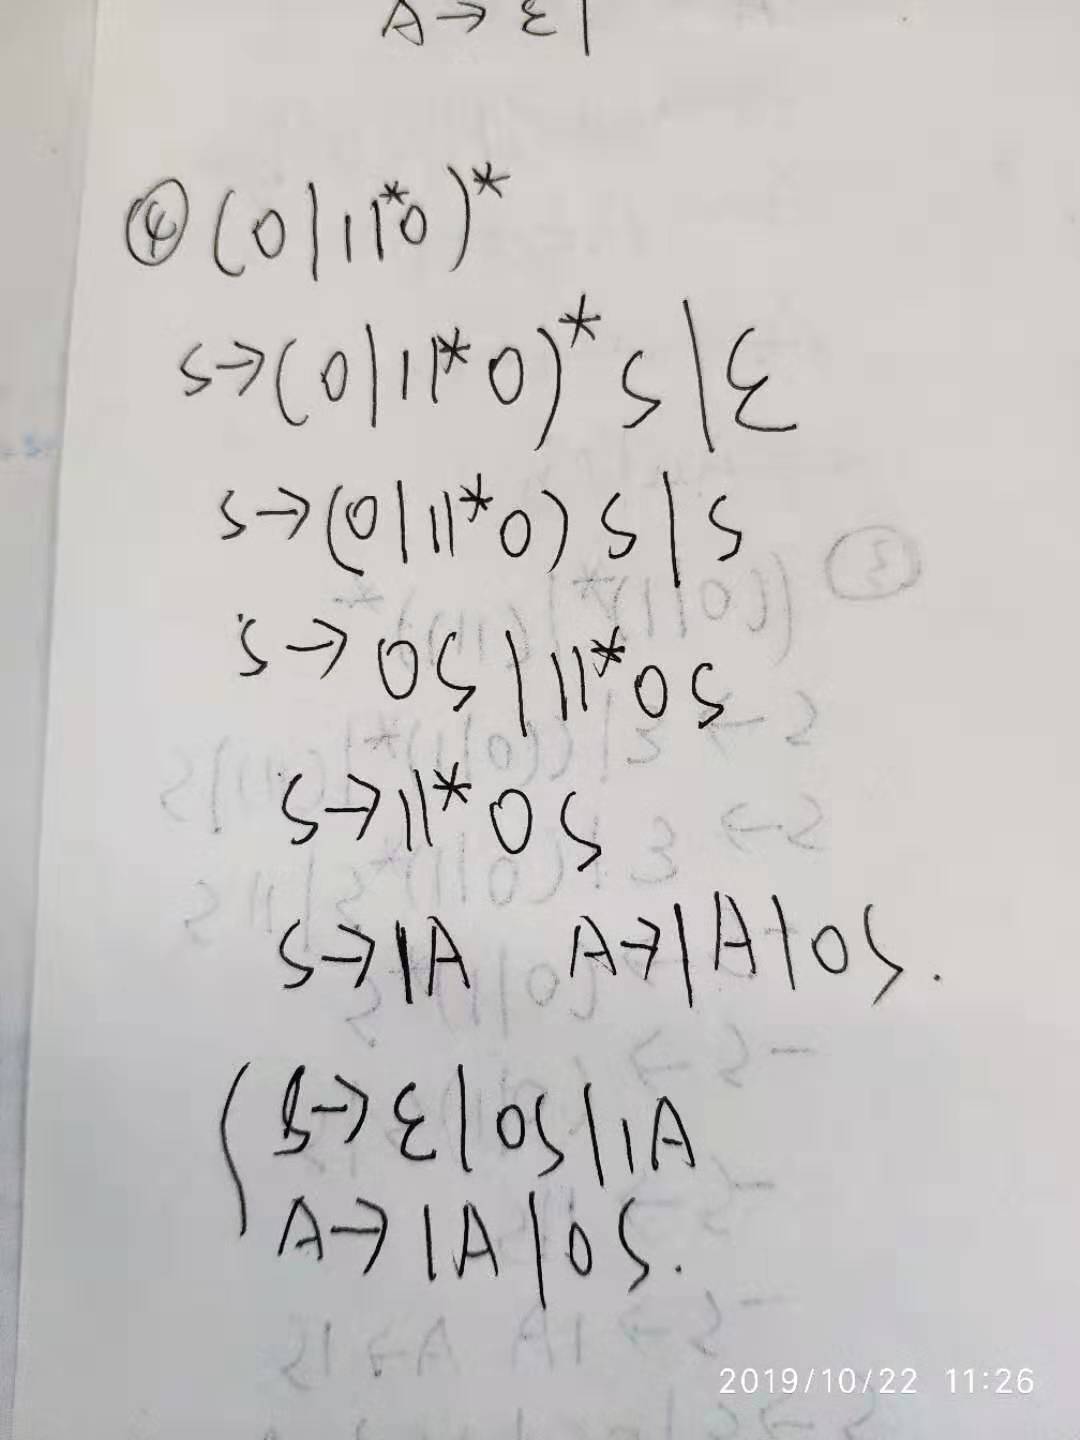 A→ε|
④(0|11*0)*
S→(0|11*0)*S|ε
S→(0|11*0)S|S
S→0S|11*0S
S→11*0S
S→1A A→1A|0S.
S→ε|0S|1A
A→1A|0S.
2019/10/22 11:26